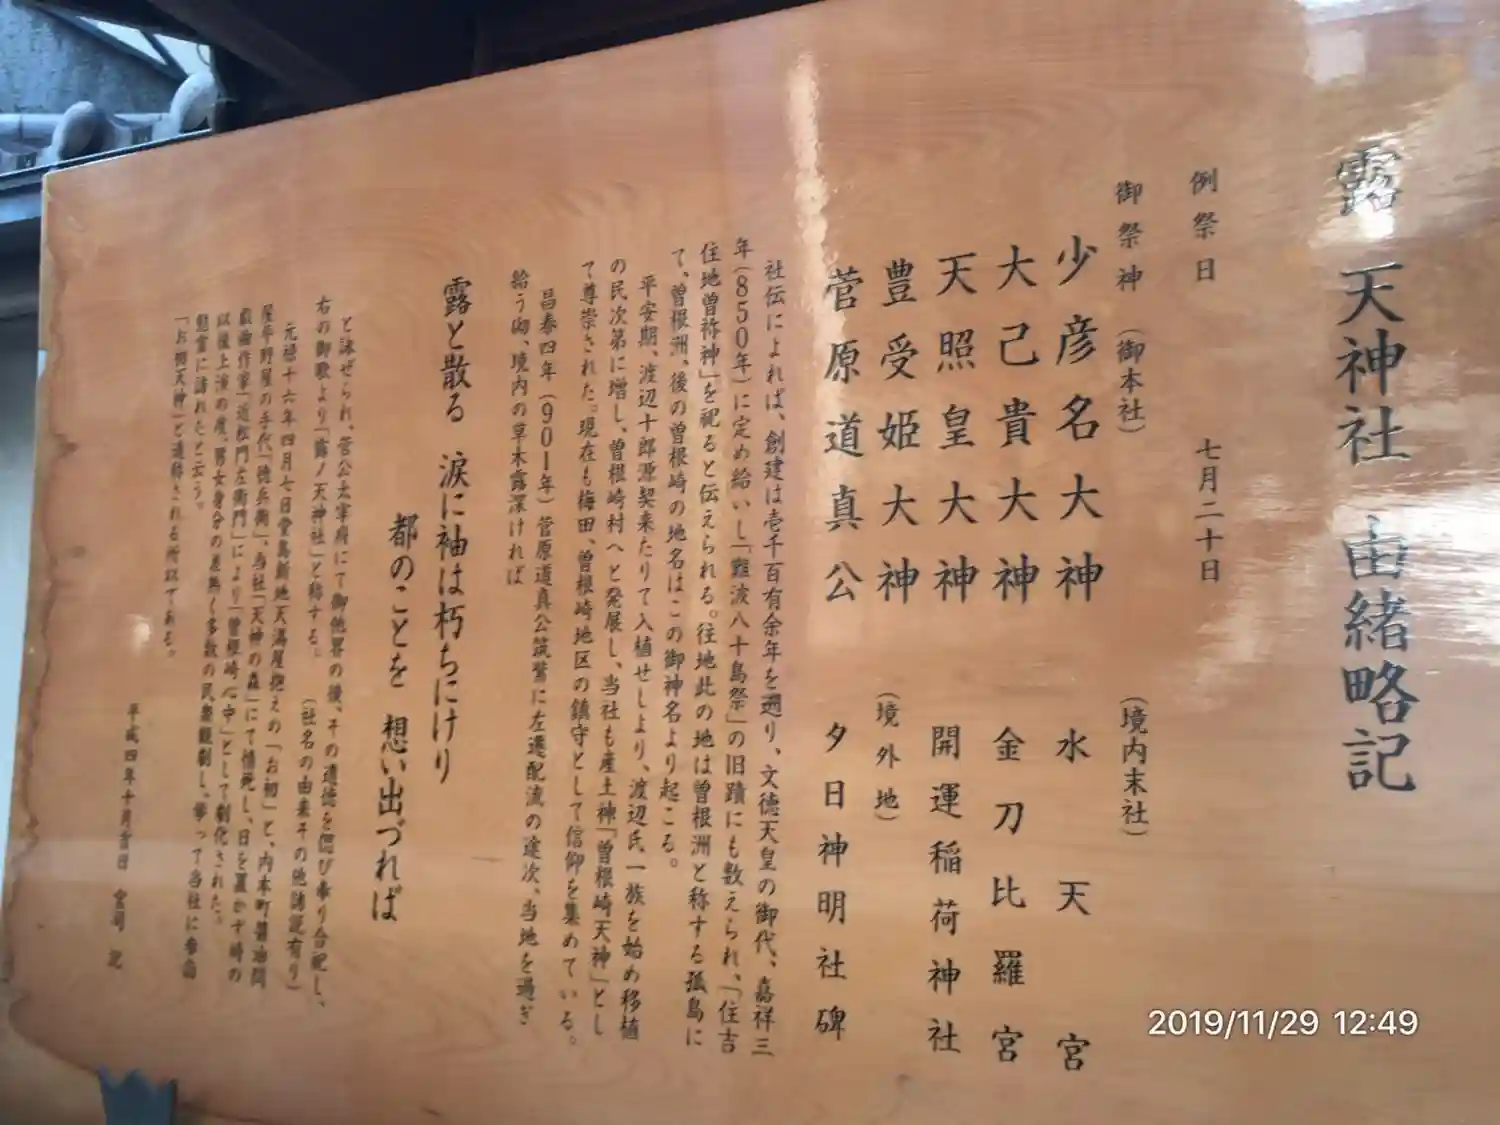 露 天神社 由緒略記
例祭日 七月二十日
御祭神 (御本社) (境内末社)
少彦名大神 水天宮
大己貴大神 金刀比羅宮
天照皇大神 開運稲荷神社
豊受姫大神 (境外地)
菅原道真公 夕日神明社碑
社伝によれば、創建は壱千百有余年を遡り、文徳天皇の御代、嘉祥三
年(850年)に定め給いし「難波八十島祭」の旧蹟にも数えられ、「住吉
住地曽祢神」を祀ると伝えられる。往地此の地は曽根洲と称する孤島に
て、曽根洲、後の曽根崎の地名はこの御神名より起こる。
平安期、渡辺十郎源契来たりて入植せしより、渡辺氏一族を始め移植
の民次第に増し、曽根崎村へと発展し、当社も産土神「曽根崎天神」とし
て尊崇された。現在も梅田、曽根崎地区の鎮守として信仰を集めている。
昌泰四年(901年)菅原道真公筑紫に左遷配流の途次、当地を過ぎ
給う砌、境内の草木露深ければ
露と散る 涙に袖は朽ちにけり
都のことを 想い出づれば
と詠ぜられ、菅公太宰府にて御他界の後、その遺徳を偲び奉り合配し、
右の御歌より「露ノ天神社」と称する。 (社名の由来その他諸説有り)
元禄十六年四月七日堂島新地天満屋抱えの「お初」と、内本町醤油問
屋平野屋の手代「徳兵衛」、当社「天神の森」にて情死し、日を置かず時の
戯曲作家「近松門左衛門」により「曽根崎心中」として劇化された。
以後上演の度、男女身分の差無く多数の民衆観劇し、挙って当社に参詣
慰霊に訪れたと云う。
「お初天神」と通称される所以である。
平成四年十月吉日 宮司 記
2019/11/29 12:49